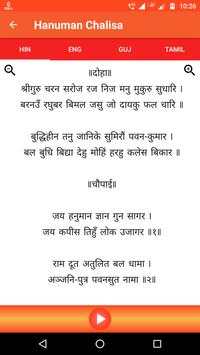 10:26
Hanuman Chalisa
HIN ENG GUJ TAMIL
॥दोहा॥
श्रीगुरु चरन सरोज रज निज मनु मुकुरु सुधारि ।
बरनउँ रघुबर बिमल जसु जो दायकु फल चारि ॥
बुद्धिहीन तनु जानिके सुमिरौं पवन-कुमार ।
बल बुधि बिद्या देहु मोहिं हरहु कलेस बिकार ॥
॥चौपाई॥
जय हनुमान ज्ञान गुन सागर ।
जय कपीस तिहुँ लोक उजागर ॥१॥
राम दूत अतुलित बल धामा ।
अञ्जनि-पुत्र पवनसुत नामा ॥२॥